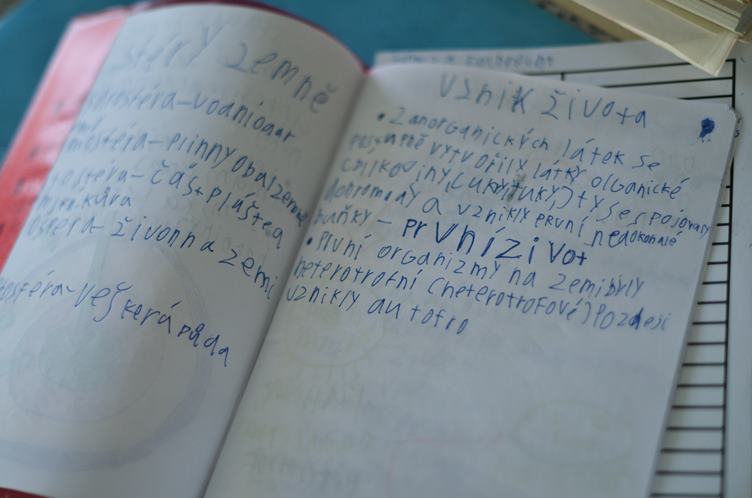 sféry zemně
hydrosféra-vodní obar
atmosféra-plinný obal země
litosféra-část pláště a
zemská kůra
biosféra-život na zemi
pedosféra-veškerá půda
vznik života
• Z anorganických látek se
postupně vytvořily látky olganické
(bílkoviny, cukry, tuky,) ty se spojovaly
dohromady a vznikly první nedokonalé
buňky - první život
• První organizmy na zemi byly
heterotrofní (heterotrofové) Pozdeji
vznikly autofro